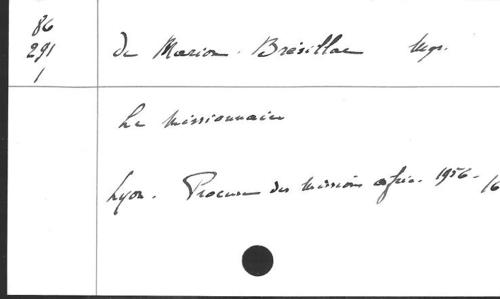 86
291
1
de Marion-Brésillac Mgr.
Le Missionnaire
Lyon. Procure des Missions afric. 1956-16